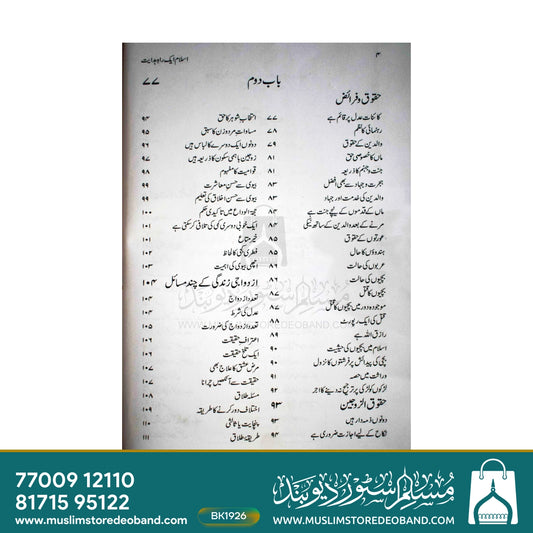 ۴
اسلام ایک راہ ہدایت
باب دوم
۷۷
حقوق و فرائض
کائنات عدل پر قائم ہے ۷۷
رہنمائی کا نظم ۷۸
والدین کے حقوق ۷۹
ماں کا خصوصی حق ۸۱
جنت و جہنم کا ذریعہ ۸۲
ہجرت و جہاد سے بھی افضل ۸۳
والدین کی خدمت اور جہاد ۸۳
ماں کے قدموں کے نیچے جنت ہے ۸۴
مرنے کے بعد والدین کے ساتھ نیکی ۸۴
عورتوں کے حقوق ۸۵
ہندوؤں کا حال ۸۵
عربوں کی حالت ۸۶
بچیوں کی حالت ۸۶
بچیوں کا قتل ۸۷
موجودہ دور میں بچیوں کا قتل ۸۷
قتل کی ایک رپورٹ ۸۸
رازق اللہ ہے ۸۸
اسلام میں بچیوں کی حیثیت ۹۰
بچی کی پیدائش پر فرشتوں کا نزول ۹۰
وراثت میں حصہ ۹۱
لڑکوں کو لڑکی پر ترجیح نہ دینے کا اجر ۹۲
حقوق الزوجین ۹۳
دونوں ذمہ دار ہیں ۹۳
نکاح کے لیے اجازت ضروری ہے ۹۴
انتخاب شوہر کا حق ۹۴
مساوات مرد و زن کا سبق ۹۵
دونوں ایک دوسرے کا لباس ہیں ۹۶
زوجین باہمی سکون کا ذریعہ ہیں ۹۷
قوامیت کا مفہوم ۹۸
بیوی سے حسن معاشرت ۹۹
بیوی سے حسن اخلاق کی تعلیم ۹۹
حجۃ الوداع میں تاکیدی حکم ۱۰۰
ایک خوبی دوسری کمی کی تلافی کر سکتی ہے ۱۰۱
خیر متاع ۱۰۱
فطری کجی کا لحاظ ۱۰۲
اچھی بیوی کی اہمیت ۱۰۳
ازدواجی زندگی کے چند مسائل ۱۰۴
تعدد ازدواج ۱۰۴
عدل کی شرط ۱۰۴
تعدد ازدواج کی ضرورت ۱۰۵
اعتراف حقیقت ۱۰۶
ایک تلخ حقیقت ۱۰۶
مرض عشق کا علاج بھی ۱۰۷
حقیقت سے آنکھیں چرانا ۱۰۷
مسئلہ طلاق ۱۰۸
اختلاف دور کرنے کا طریقہ ۱۰۹
پنچایت یا ثالثی ۱۱۰
طریقہ طلاق ۱۱۱
مسلم سٹور دیوبند
WWW.MUSLIMSTOREDEOBAND.COM
77009 12110
81715 95122
www.muslimstoredeoband.com
BK1926
مسلم سٹور دیوبند
WWW.MUSLIMSTOREDEOBAND.COM